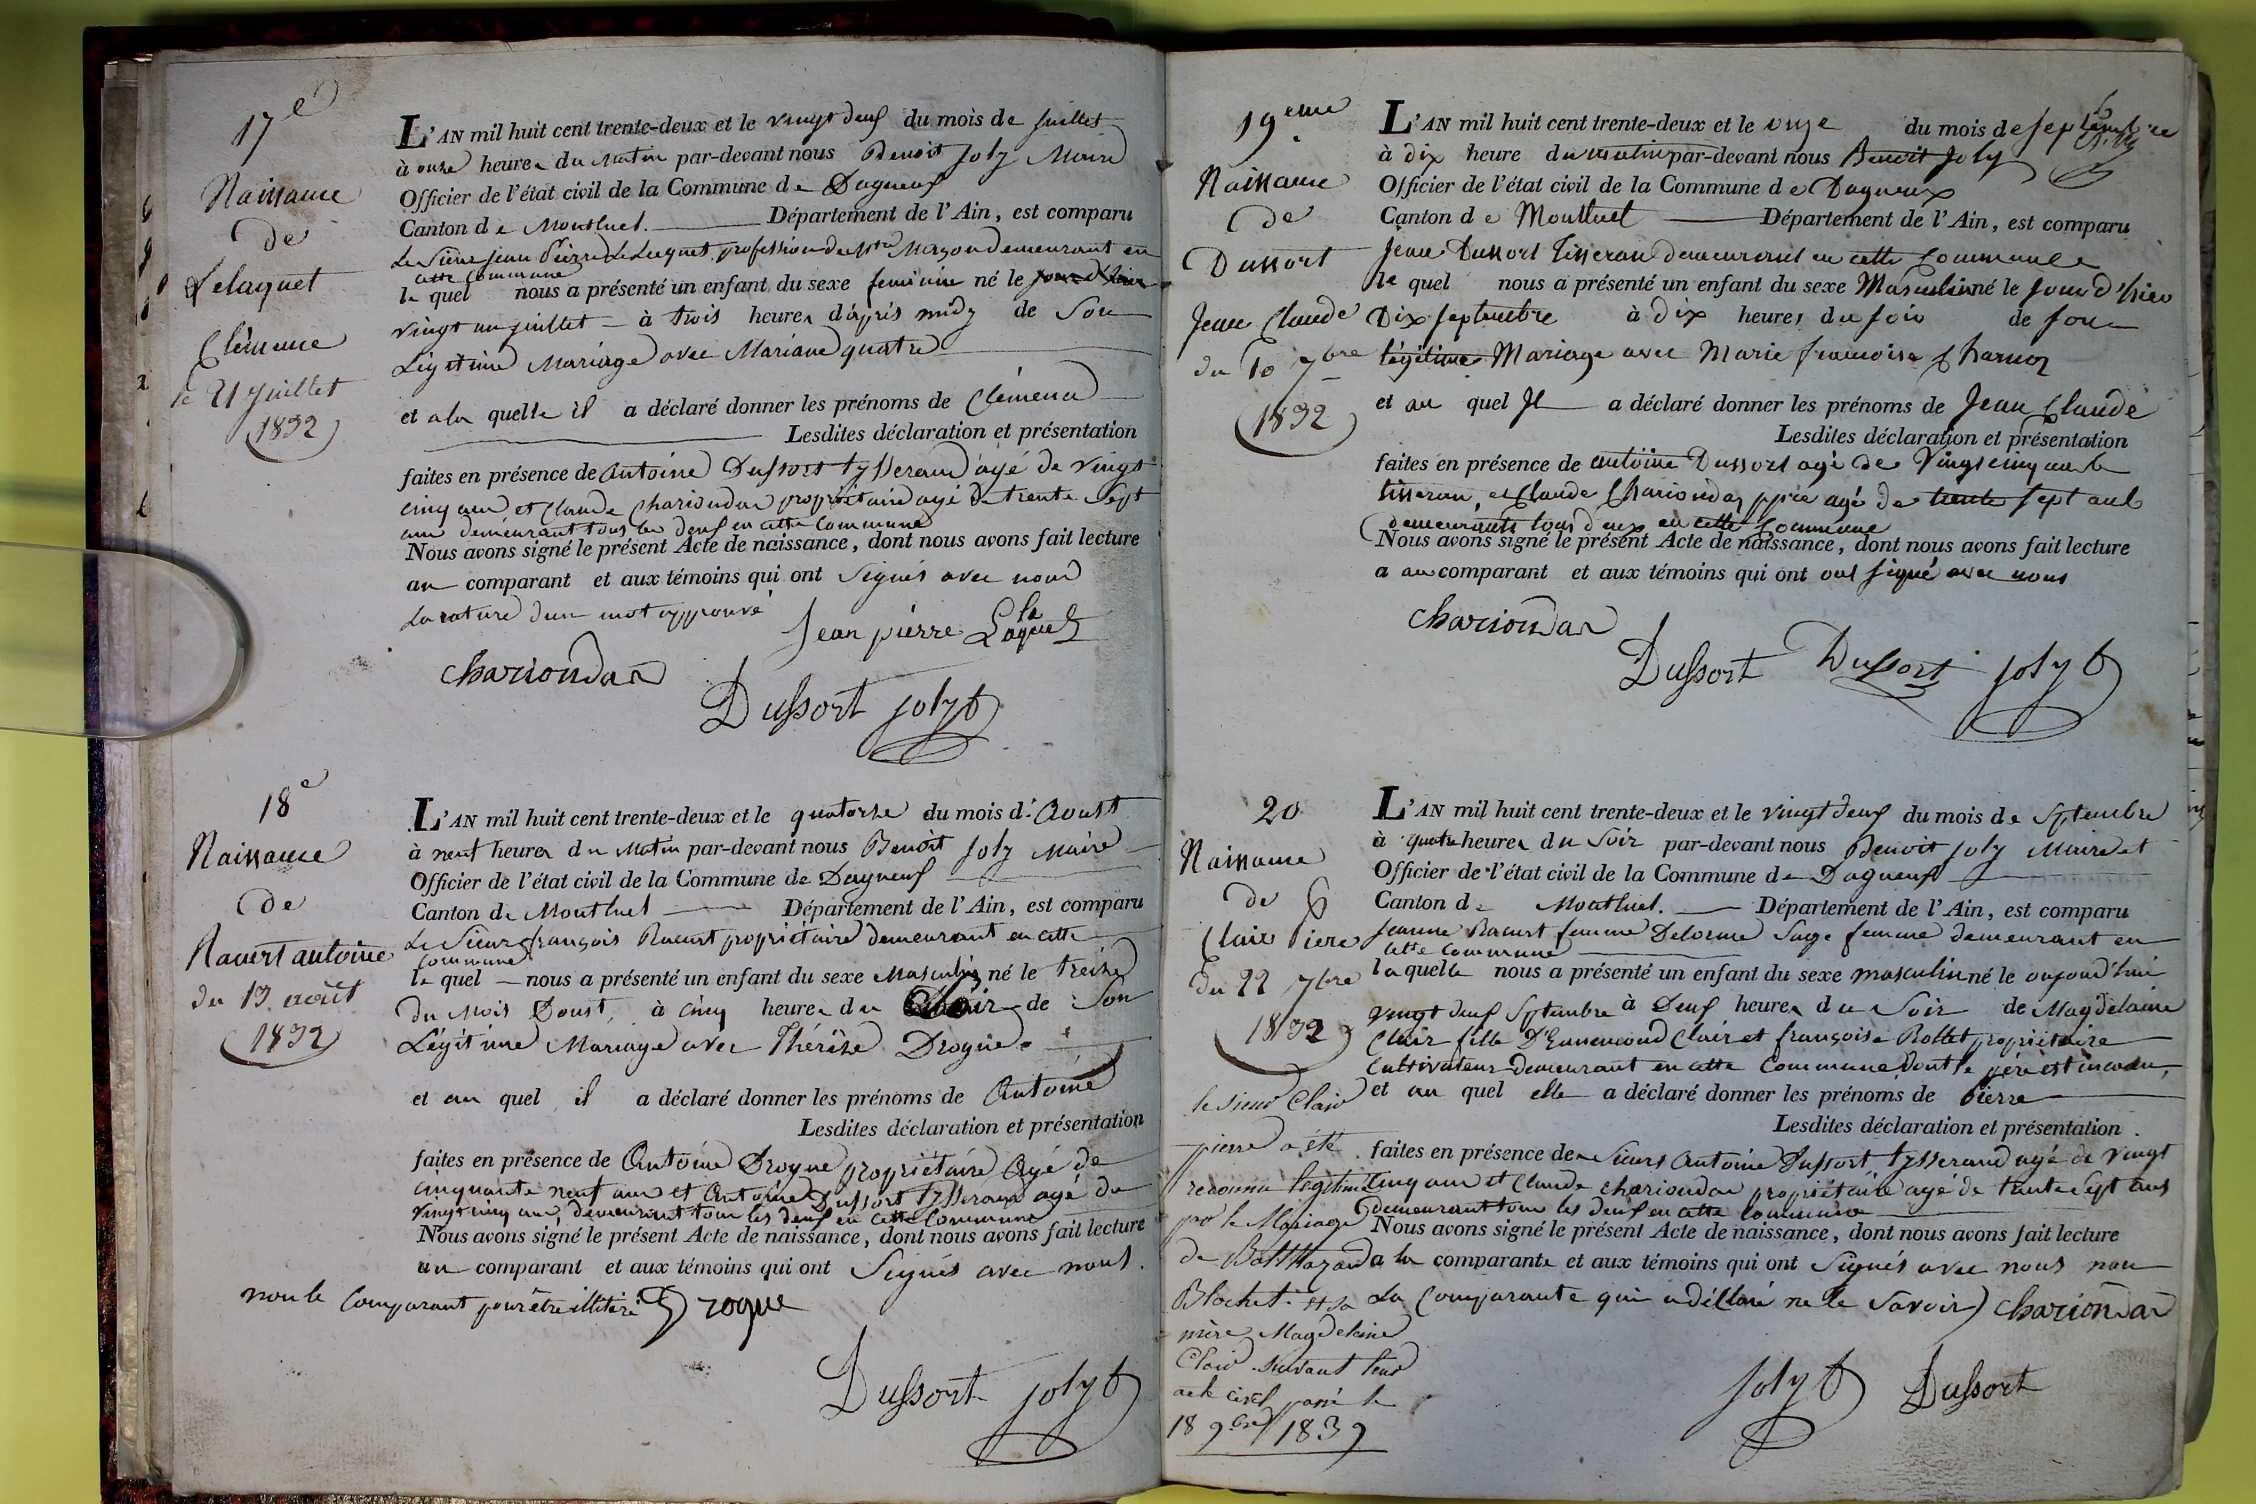 17e
Naissance
de
Lelaquet
Clémence
le 21 Juillet
1832
L'AN mil huit cent trente-deux et le vingt deux du mois de Juillet
à onze heures du matin par-devant nous Benoit Joly Maire
Officier de l'état civil de la Commune de Dagneux
Canton de Montluel. Département de l'Ain, est comparu
Le Sieur Jean Pierre profession de Mtre Maçon demeurant en
cette Commune
le quel nous a présenté un enfant du sexe feminin né le
vingt un juillet à trois heures d'après midy de Son
Légitime Mariage avec Mariane quatre
et a la quelle il a déclaré donner les prénoms de Clémence
Lesdites déclaration et présentation
faites en présence de Antoine Dussort tysserand agé de vingt
cinq ans et Claude Chariondas propriétaire agé de trente Sept
ans demeurant tous les deux en cette Commune
Nous avons signé le présent Acte de naissance, dont nous avons fait lecture
au comparant et aux témoins qui ont Signés avec nous
La rature d'un mot approuvé
Jean pierre Lalaquet
chariondas
Dussort Joly b
18e
Naissance
de
Racurt antoine
du 13 août
1832
L'AN mil huit cent trente-deux et le quatorze du mois d'Aoust
à neuf heures du Matin par-devant nous Benoit Joly Maire
Officier de l'état civil de la Commune de Dagneux
Canton de Montluel Département de l'Ain, est comparu
Le Sieur françois Racurt propriétaire demeurant en cette
Commune
le quel nous a présenté un enfant du sexe Masculin né le treize
du Mois D'oust, à cinq heures du Soir de Son
Légitime Mariage avec Thérèse Drogue
et au quel il a déclaré donner les prénoms de Antoine
Lesdites déclaration et présentation
faites en présence de Antoine Drogue propriétaire Agé de
cinquante neuf ans et Antoine Dussort tysserand agé de
vingt cinq ans, demeurant tous les deux en cette Commune
Nous avons signé le présent Acte de naissance, dont nous avons fait lecture
au comparant et aux témoins qui ont Signés avec nous.
non le Comparant pour être illitéré Drogue
Dussort Joly b
19eme
Naissance
de
Dussort
Jean Claude
du 10 7bre
1832
L'AN mil huit cent trente-deux et le onze du mois de septembre
à dix heure du matin par-devant nous Benoit Joly
Officier de l'état civil de la Commune de Dagneux
Canton de Montluel Département de l'Ain, est comparu
Jean Dussort Tisseran demeurant en cette Commune
le quel nous a présenté un enfant du sexe Masculin né le Jour d'hier
Dix Septembre à dix heures du soir de son
légitime Mariage avec Marie francoise Charnoz
et au quel Il a déclaré donner les prénoms de Jean Claude
Lesdites déclaration et présentation
faites en présence de antoine Dussort agé de Vingt cinq ans
tisseran, et Claude Chariondaz ppre agé de trente sept ans
demeurants tous deux en cette Commune
Nous avons signé le présent Acte de naissance, dont nous avons fait lecture
a au comparant et aux témoins qui ont ont signé avec nous
chariondas
Dussort Dussort Joly b
20
Naissance
de
Clair Piere
du 22 7bre
1832
L'AN mil huit cent trente-deux et le vingt deux du mois de Septembre
à quatre heures du Soir par-devant nous Benoit Joly Maire et
Officier de l'état civil de la Commune de Dagneux
Canton de Montluel. Département de l'Ain, est comparu
Jeanne Racurt femme Delorme Sage femme demeurant en
cette Commune
la quelle nous a présenté un enfant du sexe masculin né le aujourd'hui
vingt deux Septembre à Deux heures du Soir de Magdelaine
Clair fille D'Ennemond Clair et françoise Rollet propriétaire
Cultivateur demeurant en cette Commune dont le père est inconnu,
et au quel elle a déclaré donner les prénoms de Pierre
Lesdites déclaration et présentation
faites en présence de Sieurs Antoine Dussort, tysserand agé de vingt
Cinq ans et Claude chariondas propriétaire agé de trente Sept ans
demeurant tous les deux en cette Commune
Nous avons signé le présent Acte de naissance, dont nous avons fait lecture
a la comparante et aux témoins qui ont Signés avec nous non
La Comparante qui a déclaré ne le Savoir chariondas
Joly b Dussort
le sieur Clair
pierre a été
reconnu légitime
par le Mariage
de Balthazard
Blochet et sa
mère Magdelaine
Clair suivant leur
acte civil passé le
18 9bre 1839